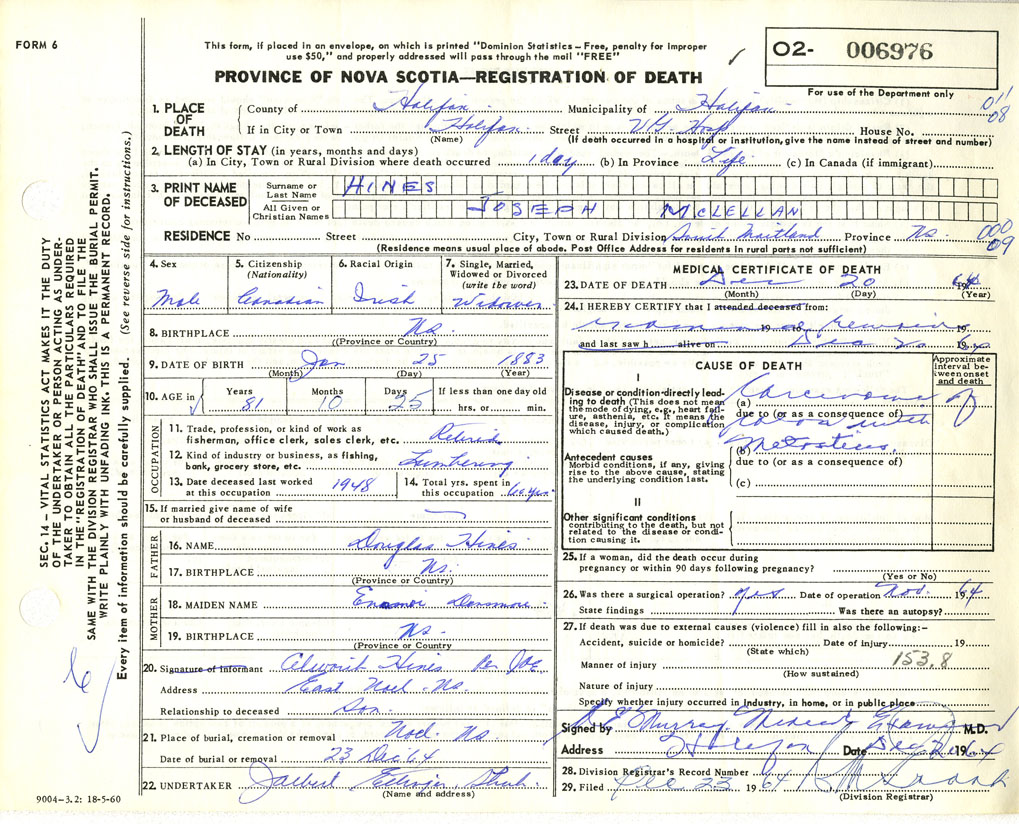 FORM 6
This form, if placed in an envelope, on which is printed "Dominion Statistics – Free, penalty for improper
use $50," and properly addressed will pass through the mail "FREE"
PROVINCE OF NOVA SCOTIA—REGISTRATION OF DEATH
O2- 006976
For use of the Department only
011
08
1. PLACE OF DEATH
County of Halifax Municipality of Halifax
If in City or Town Halifax Street VG Hosp House No.
(Name) (If death occurred in a hospital or institution, give the name instead of street and number)
2. LENGTH OF STAY (in years, months and days)
(a) In City, Town or Rural Division where death occurred 1 day (b) In Province Life (c) In Canada (if immigrant)
3. PRINT NAME OF DECEASED
Surname or Last Name HINES
All Given or Christian Names JOSEPH McLELLAN
RESIDENCE No Street City, Town or Rural Division South Maitland Province NS
000
09
(Residence means usual place of abode. Post Office Address for residents in rural parts not sufficient)
4. Sex Male
5. Citizenship (Nationality) Canadian
6. Racial Origin Irish
7. Single, Married, Widowed or Divorced (write the word) Widower
8. BIRTHPLACE NS
(Province or Country)
9. DATE OF BIRTH Jan 25 1883
(Month) (Day) (Year)
10. AGE in Years 81 Months 10 Days 25 If less than one day old hrs. or min.
OCCUPATION
11. Trade, profession, or kind of work as
fisherman, office clerk, sales clerk, etc. Retired
12. Kind of industry or business, as fishing,
bank, grocery store, etc. Lumbering
13. Date deceased last worked
at this occupation 1948
14. Total yrs. spent in
this occupation
15. If married give name of wife
or husband of deceased —
FATHER
16. NAME Douglas Hines
17. BIRTHPLACE NS.
(Province or Country)
MOTHER
18. MAIDEN NAME
19. BIRTHPLACE NS.
(Province or Country)
20. Signature of Informant Hines Per
Address East Noel NS.
Relationship to deceased Son
21. Place of burial, cremation or removal Noel. NS
Date of burial or removal 23 Dec 64
22. UNDERTAKER
(Name and address)
MEDICAL CERTIFICATE OF DEATH
23. DATE OF DEATH Dec 20 1964
(Month) (Day) (Year)
24. I HEREBY CERTIFY that I attended deceased from:
19 19
and last saw h alive on Dec 20 19 64
CAUSE OF DEATH
Approximate interval between onset and death
I
Disease or condition directly leading to death (This does not mean the mode of dying, e.g., heart failure, asthenia, etc. It means the disease, injury, or complication which caused death.)
(a) Carcinoma of
due to (or as a consequence of)
colon with
(b) Metastasis
Antecedent causes
Morbid conditions, if any, giving rise to the above cause, stating the underlying condition last.
due to (or as a consequence of)
(c)
II
Other significant conditions
contributing to the death, but not related to the disease or condition causing it.
25. If a woman, did the death occur during
pregnancy or within 90 days following pregnancy?
(Yes or No)
26. Was there a surgical operation? yes Date of operation Nov. 1964
State findings Was there an autopsy?
27. If death was due to external causes (violence) fill in also the following:–
Accident, suicide or homicide? Date of injury 19
(State which)
153.8
Manner of injury
(How sustained)
Nature of injury
Specify whether injury occurred in industry, in home, or in public place
Signed by Murray Medical Examiner M.D.
Address Halifax Date Dec 20 1964
28. Division Registrar's Record Number
29. Filed Dec 23 1964
(Division Registrar)
SEC. 14 – VITAL STATISTICS ACT MAKES IT THE DUTY
OF THE UNDERTAKER OR PERSON ACTING AS UNDER-
TAKER TO OBTAIN ALL THE PARTICULARS REQUIRED
IN THE "REGISTRATION OF DEATH" AND TO FILE THE
SAME WITH THE DIVISION REGISTRAR WHO SHALL ISSUE THE BURIAL PERMIT.
WRITE PLAINLY WITH UNFADING INK. THIS IS A PERMANENT RECORD.
Every item of information should be carefully supplied. (See reverse side for instructions.)
9004–3.2: 18-5-60